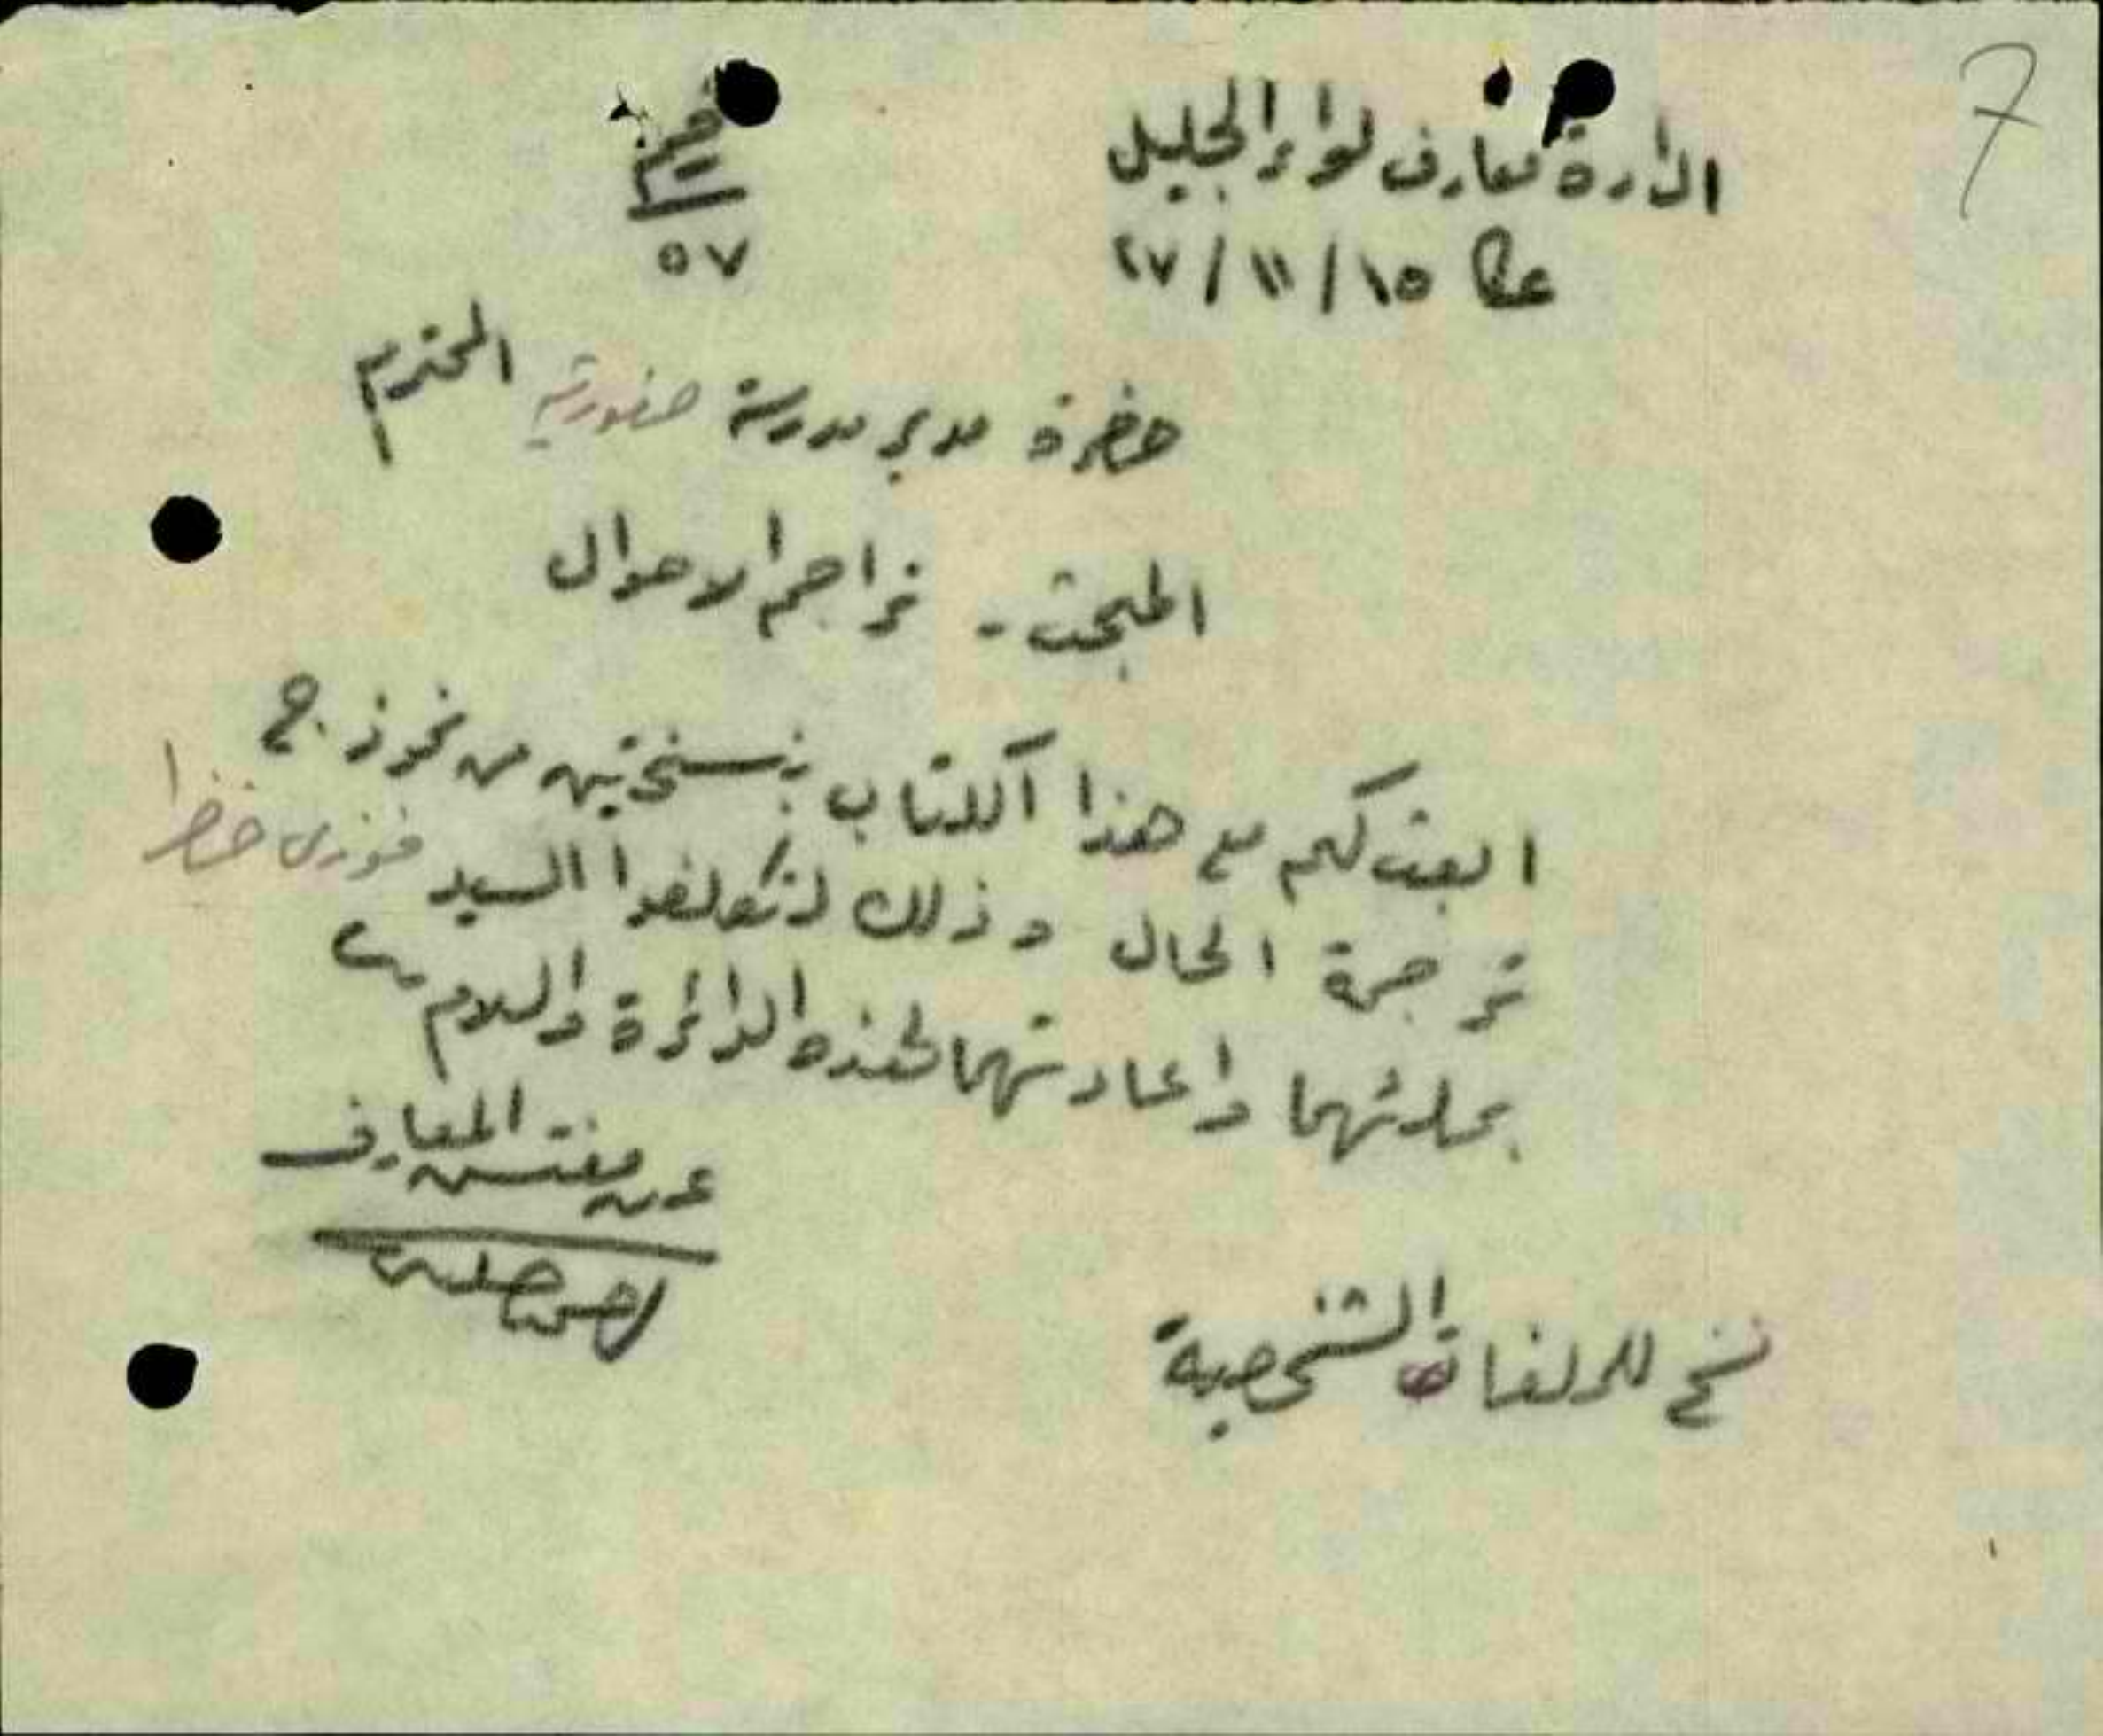 7
ادارة معارف لواء الجليل
عكا ١٥/١١/٢٧
٥٧
حضرة مدير مدرسة صفورية المحترم
المبحث - تراجم الاحوال
ابعث لكم مع هذا الكتاب بنسختين من نموذج
ترجمة الحال وذلك لتكلفوا السيد فوزي خضرا
بملئهما واعادتهما لهذه الدائرة والسلام
عن مفتش المعارف
نسخ للملفات الشخصية